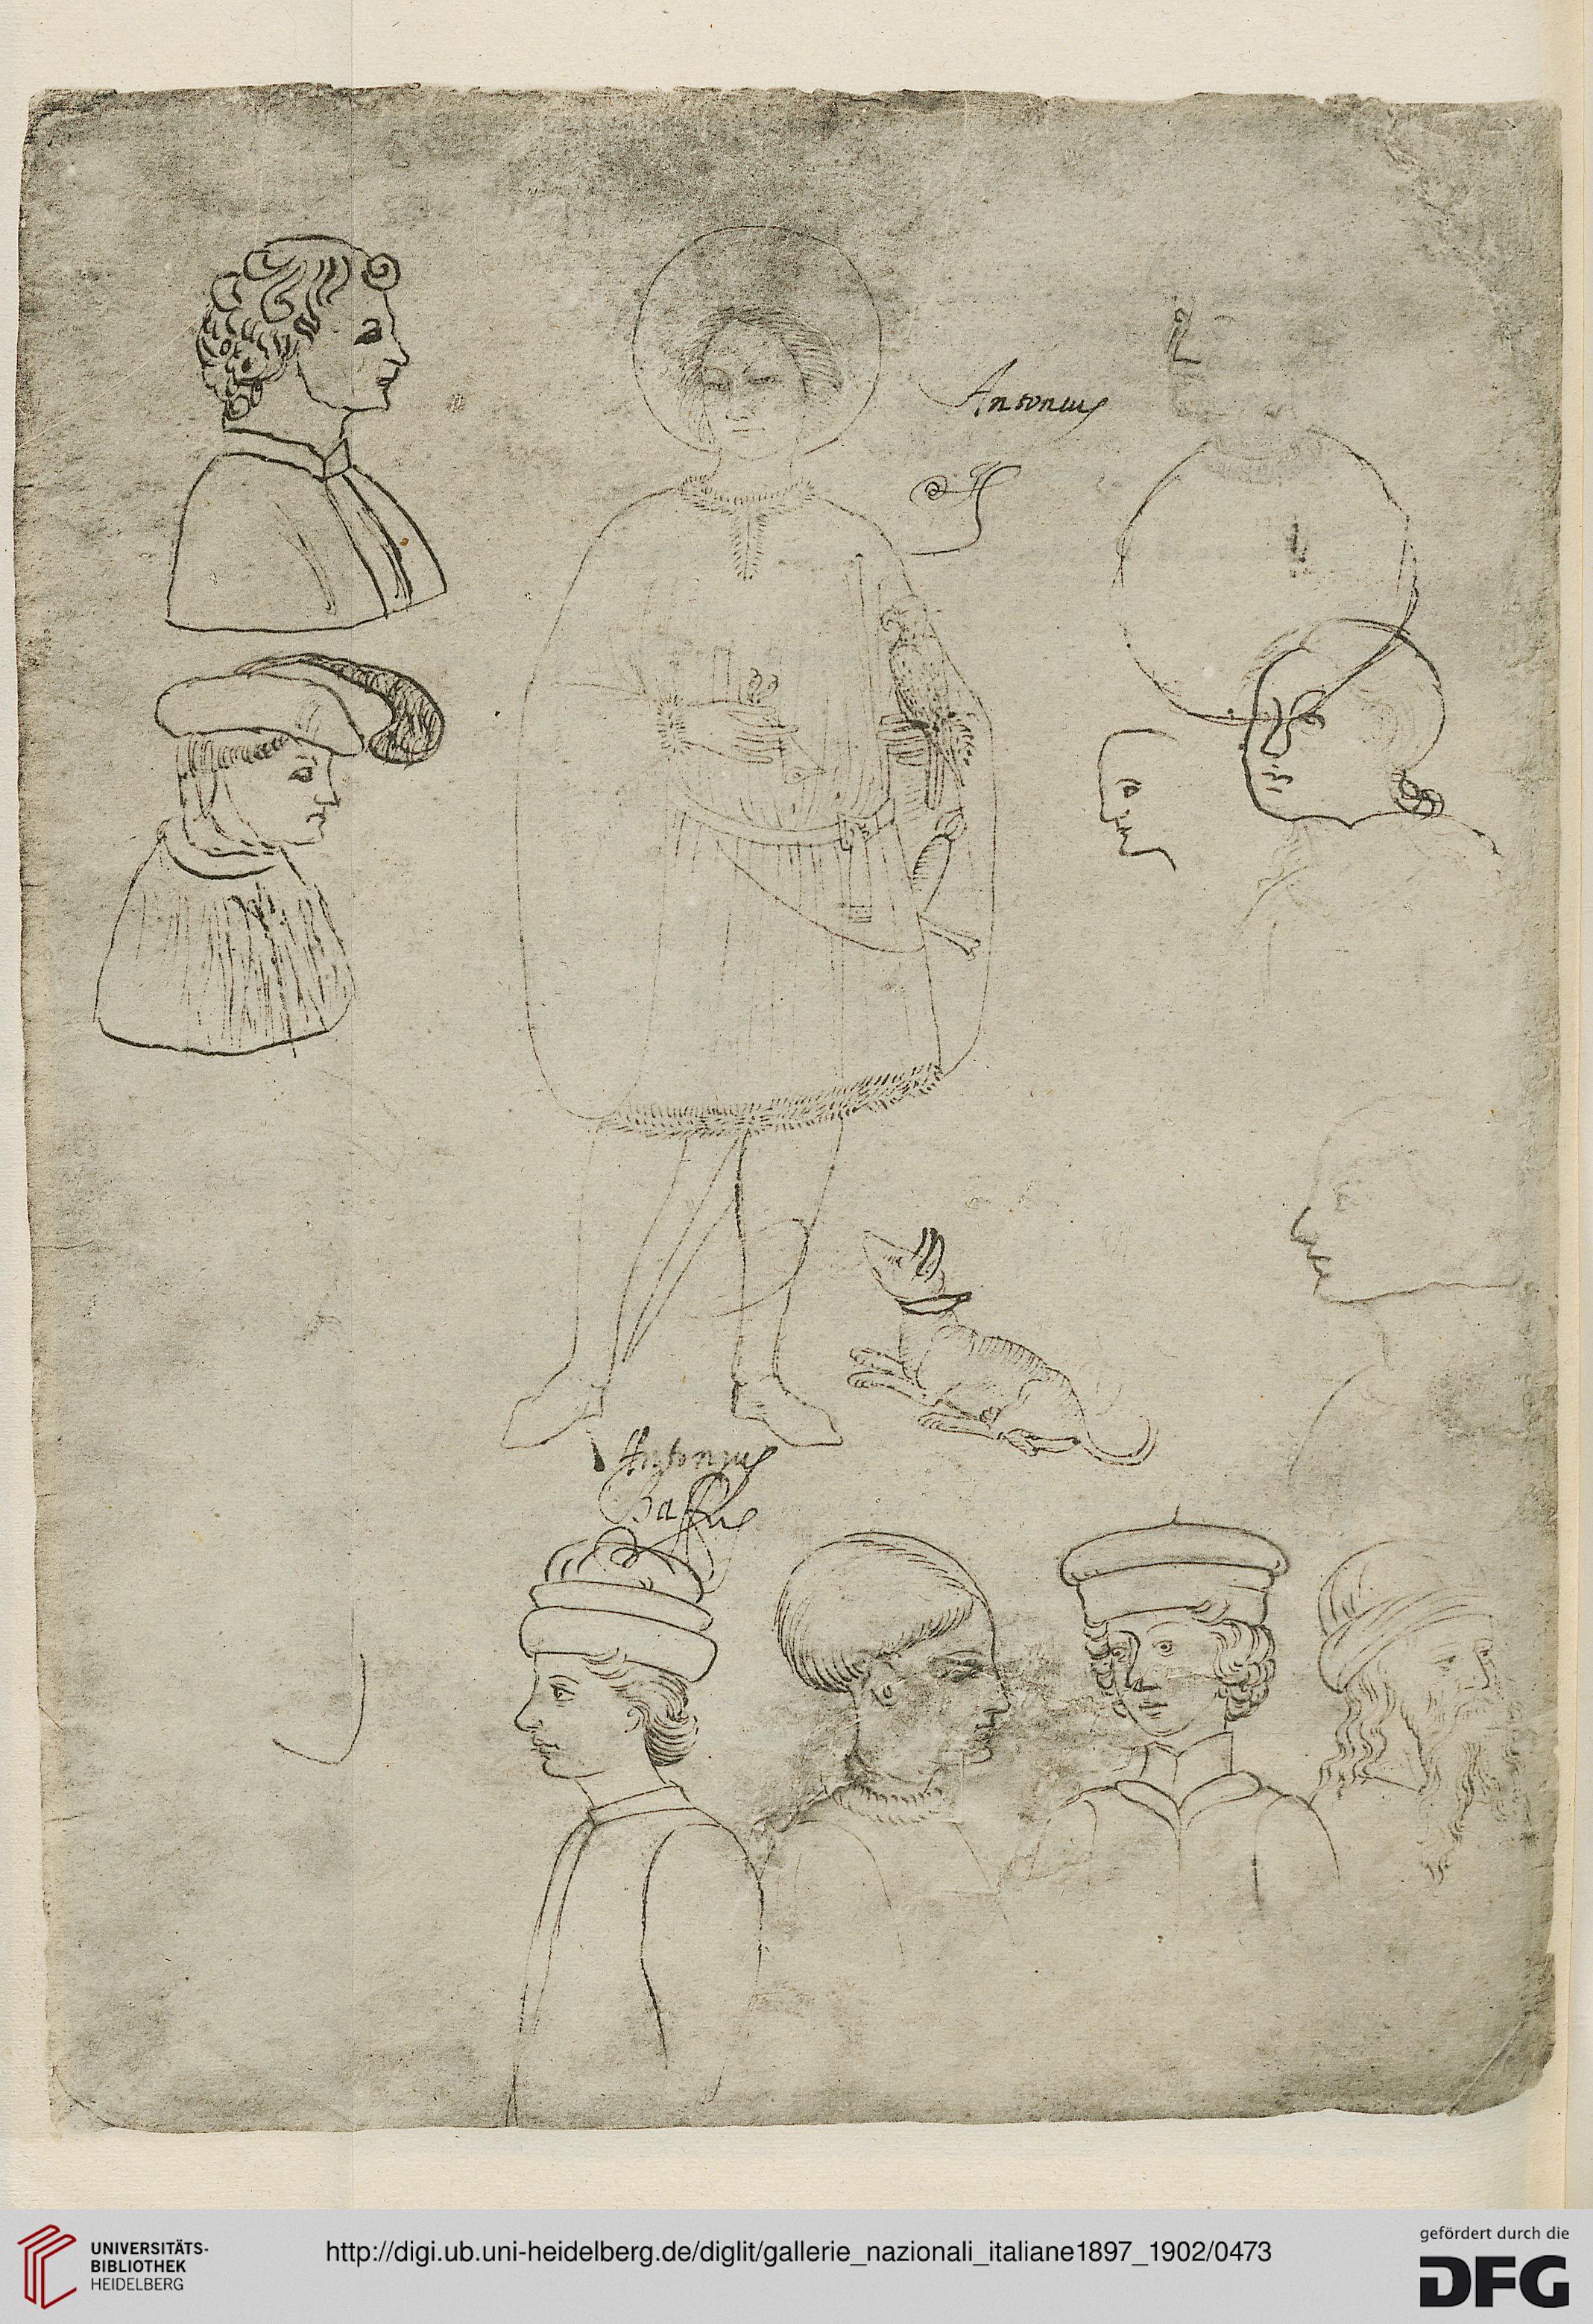 Antonius
Antonius
Bassus
UNIVERSITÄTS-
BIBLIOTHEK
HEIDELBERG
http://digi.ub.uni-heidelberg.de/diglit/gallerie_nazionali_italiane1897_1902/0473
gefördert durch die
DFG